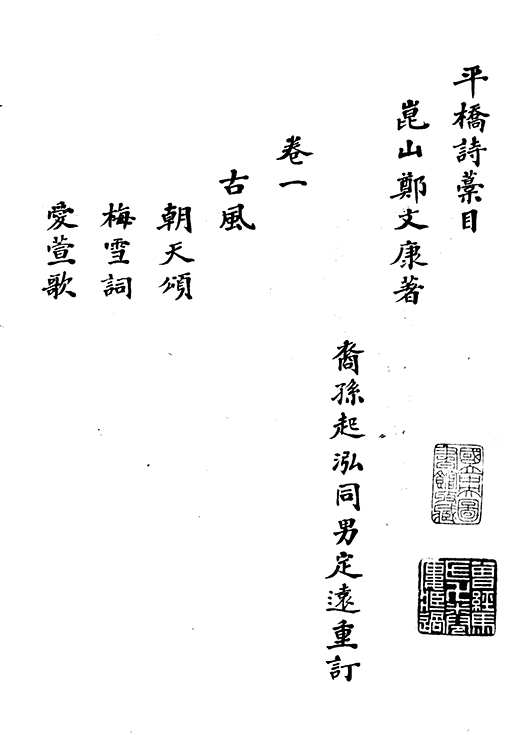 平橋詩藁目
崑山鄭文康著
裔孫起泓同男定遠重訂
卷一
古風
朝天頌
梅雪詞
愛萱歌
國立中央圖書館收藏